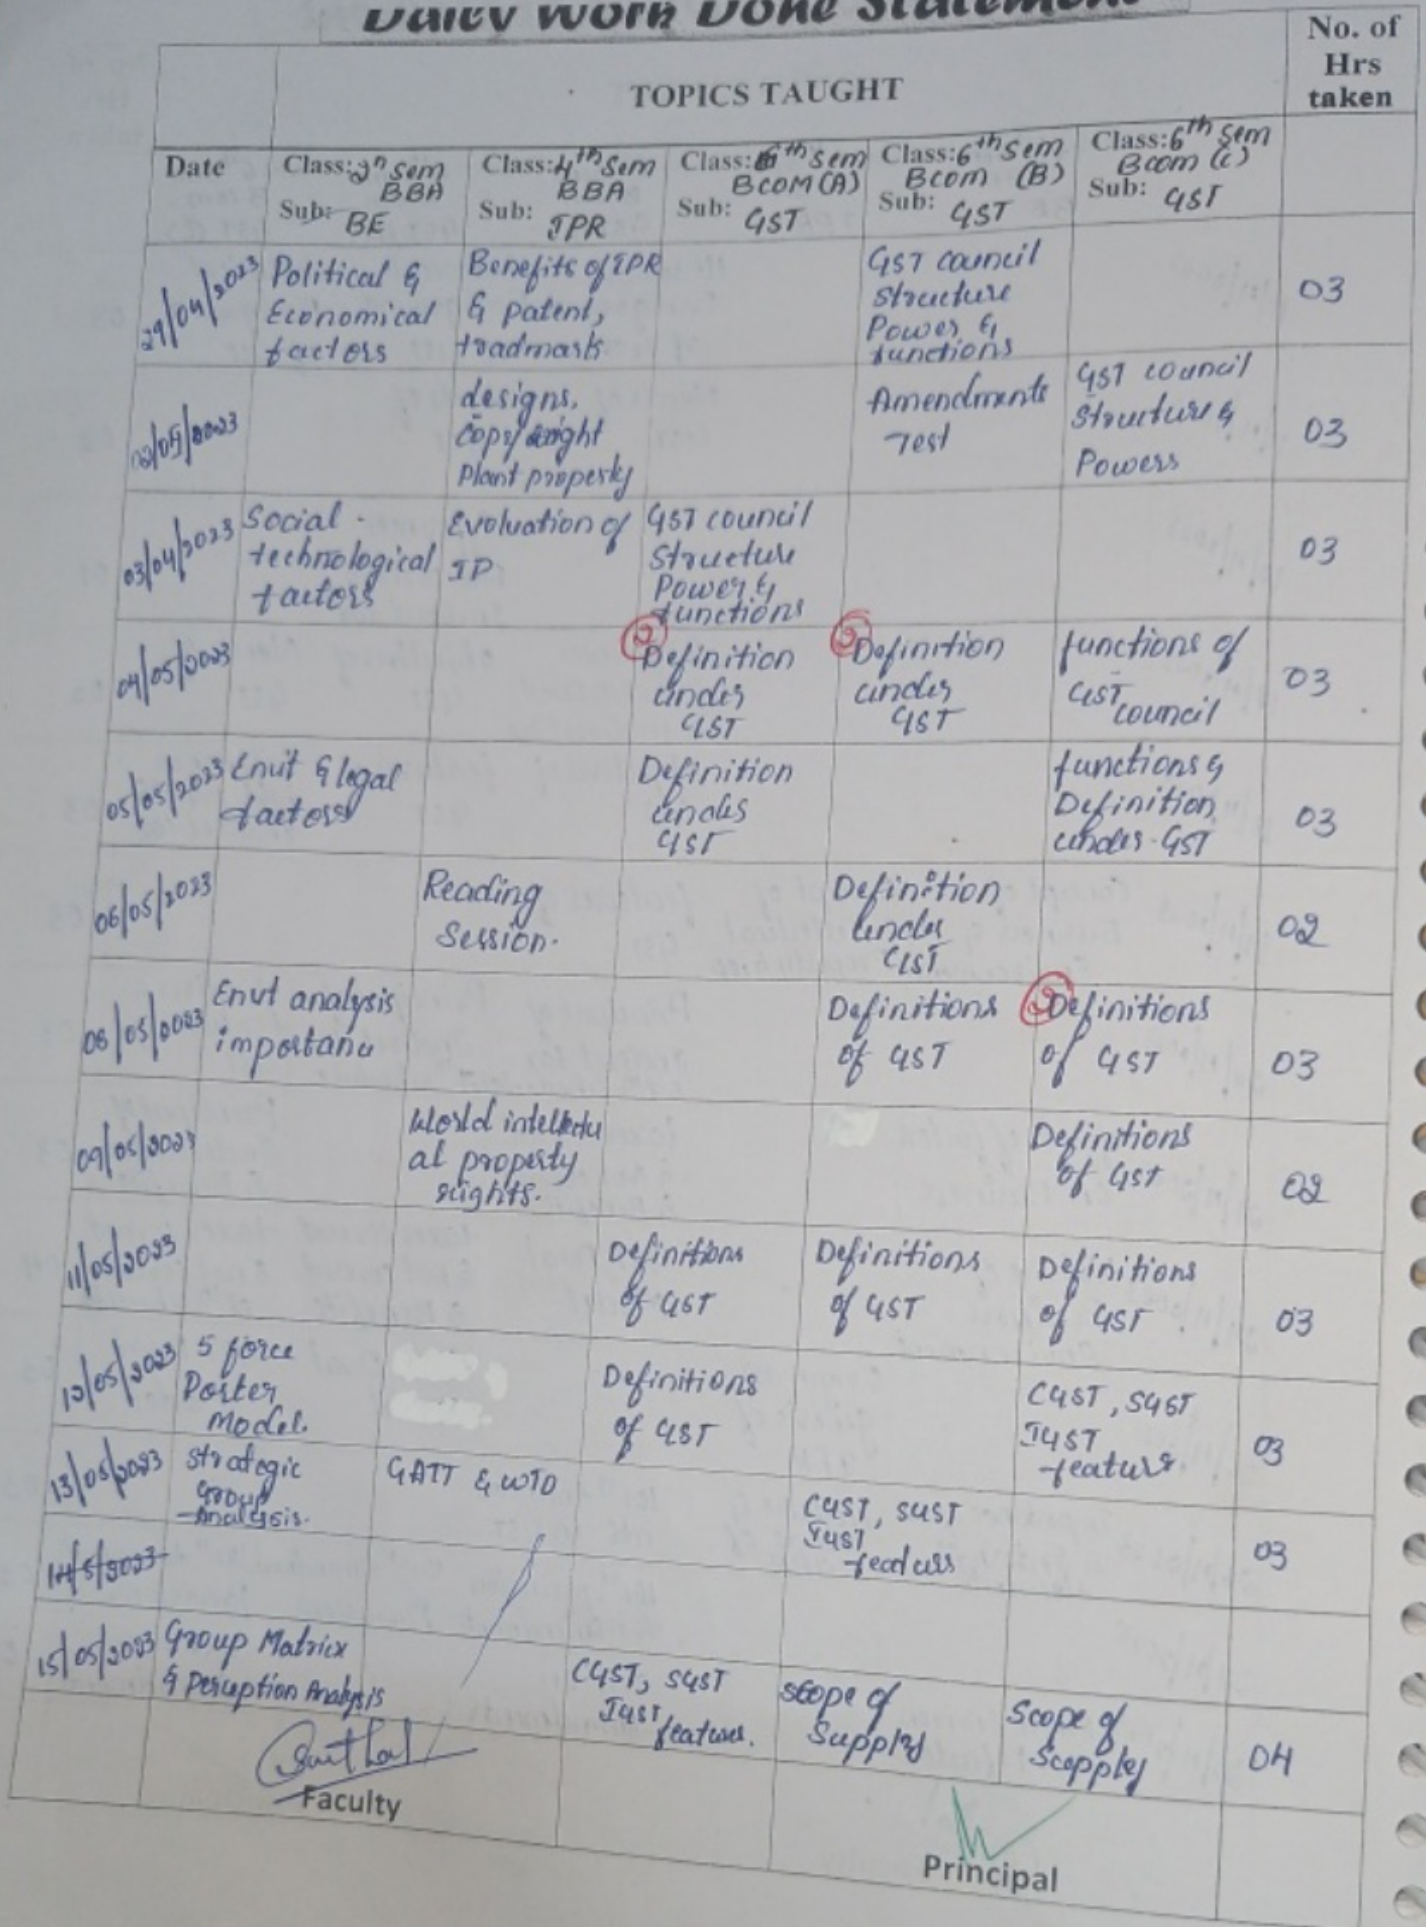 Daily Work Done Statement
TOPICS TAUGHT
No. of
Hrs
taken
Date
Class: 2n Sem
BBA
Sub: BE
Class: 4th Sem
BBA
Sub: IPR
Class: 6th Sem
BCOM (A)
Sub: GST
Class: 6th Sem
Bcom (B)
Sub: GST
Class: 6th Sem
Bcom (C)
Sub: GST
29/04/2023
Political &
Economical
factors
Benefits of IPR
& patent,
tradmark
GST council
Structure
Power &
functions
03
02/05/2023
designs,
Copy right
Plant property
Amendments
Test
GST council
Structure &
Powers
03
03/04/2023
Social
technological
factors
Evaluation of
IP
GST council
Structure
Power &
functions
03
04/05/2023
2
Definition
under
GST
2
Definition
under
GST
functions of
GST
council
03
05/05/2023
Envit & legal
factors
Definition
under
GST
functions &
Definition
under GST
03
06/05/2023
Reading
Session.
Definition
under
GST
02
08/05/2023
Envt analysis
importanu
Definitions
of GST
2
Definitions
of GST
03
09/05/2023
World intellectu
al property
rights.
Definitions
of GST
02
11/05/2023
Definitions
of GST
Definitions
of GST
Definitions
of GST
03
12/05/2023
5 force
Porter
Model.
Definitions
of GST
CGST, SGST
IGST
feature
03
13/05/2023
Strategic
Group
Analysis.
GATT & WTO
CGST, SGST
IGST
features
03
14/5/2023
15/05/2023
Group Matrix
& Perception Analysis
CGST, SGST
IGST
features.
Scope of
Supply
Scope of
Scopply
04
Faculty
Principal